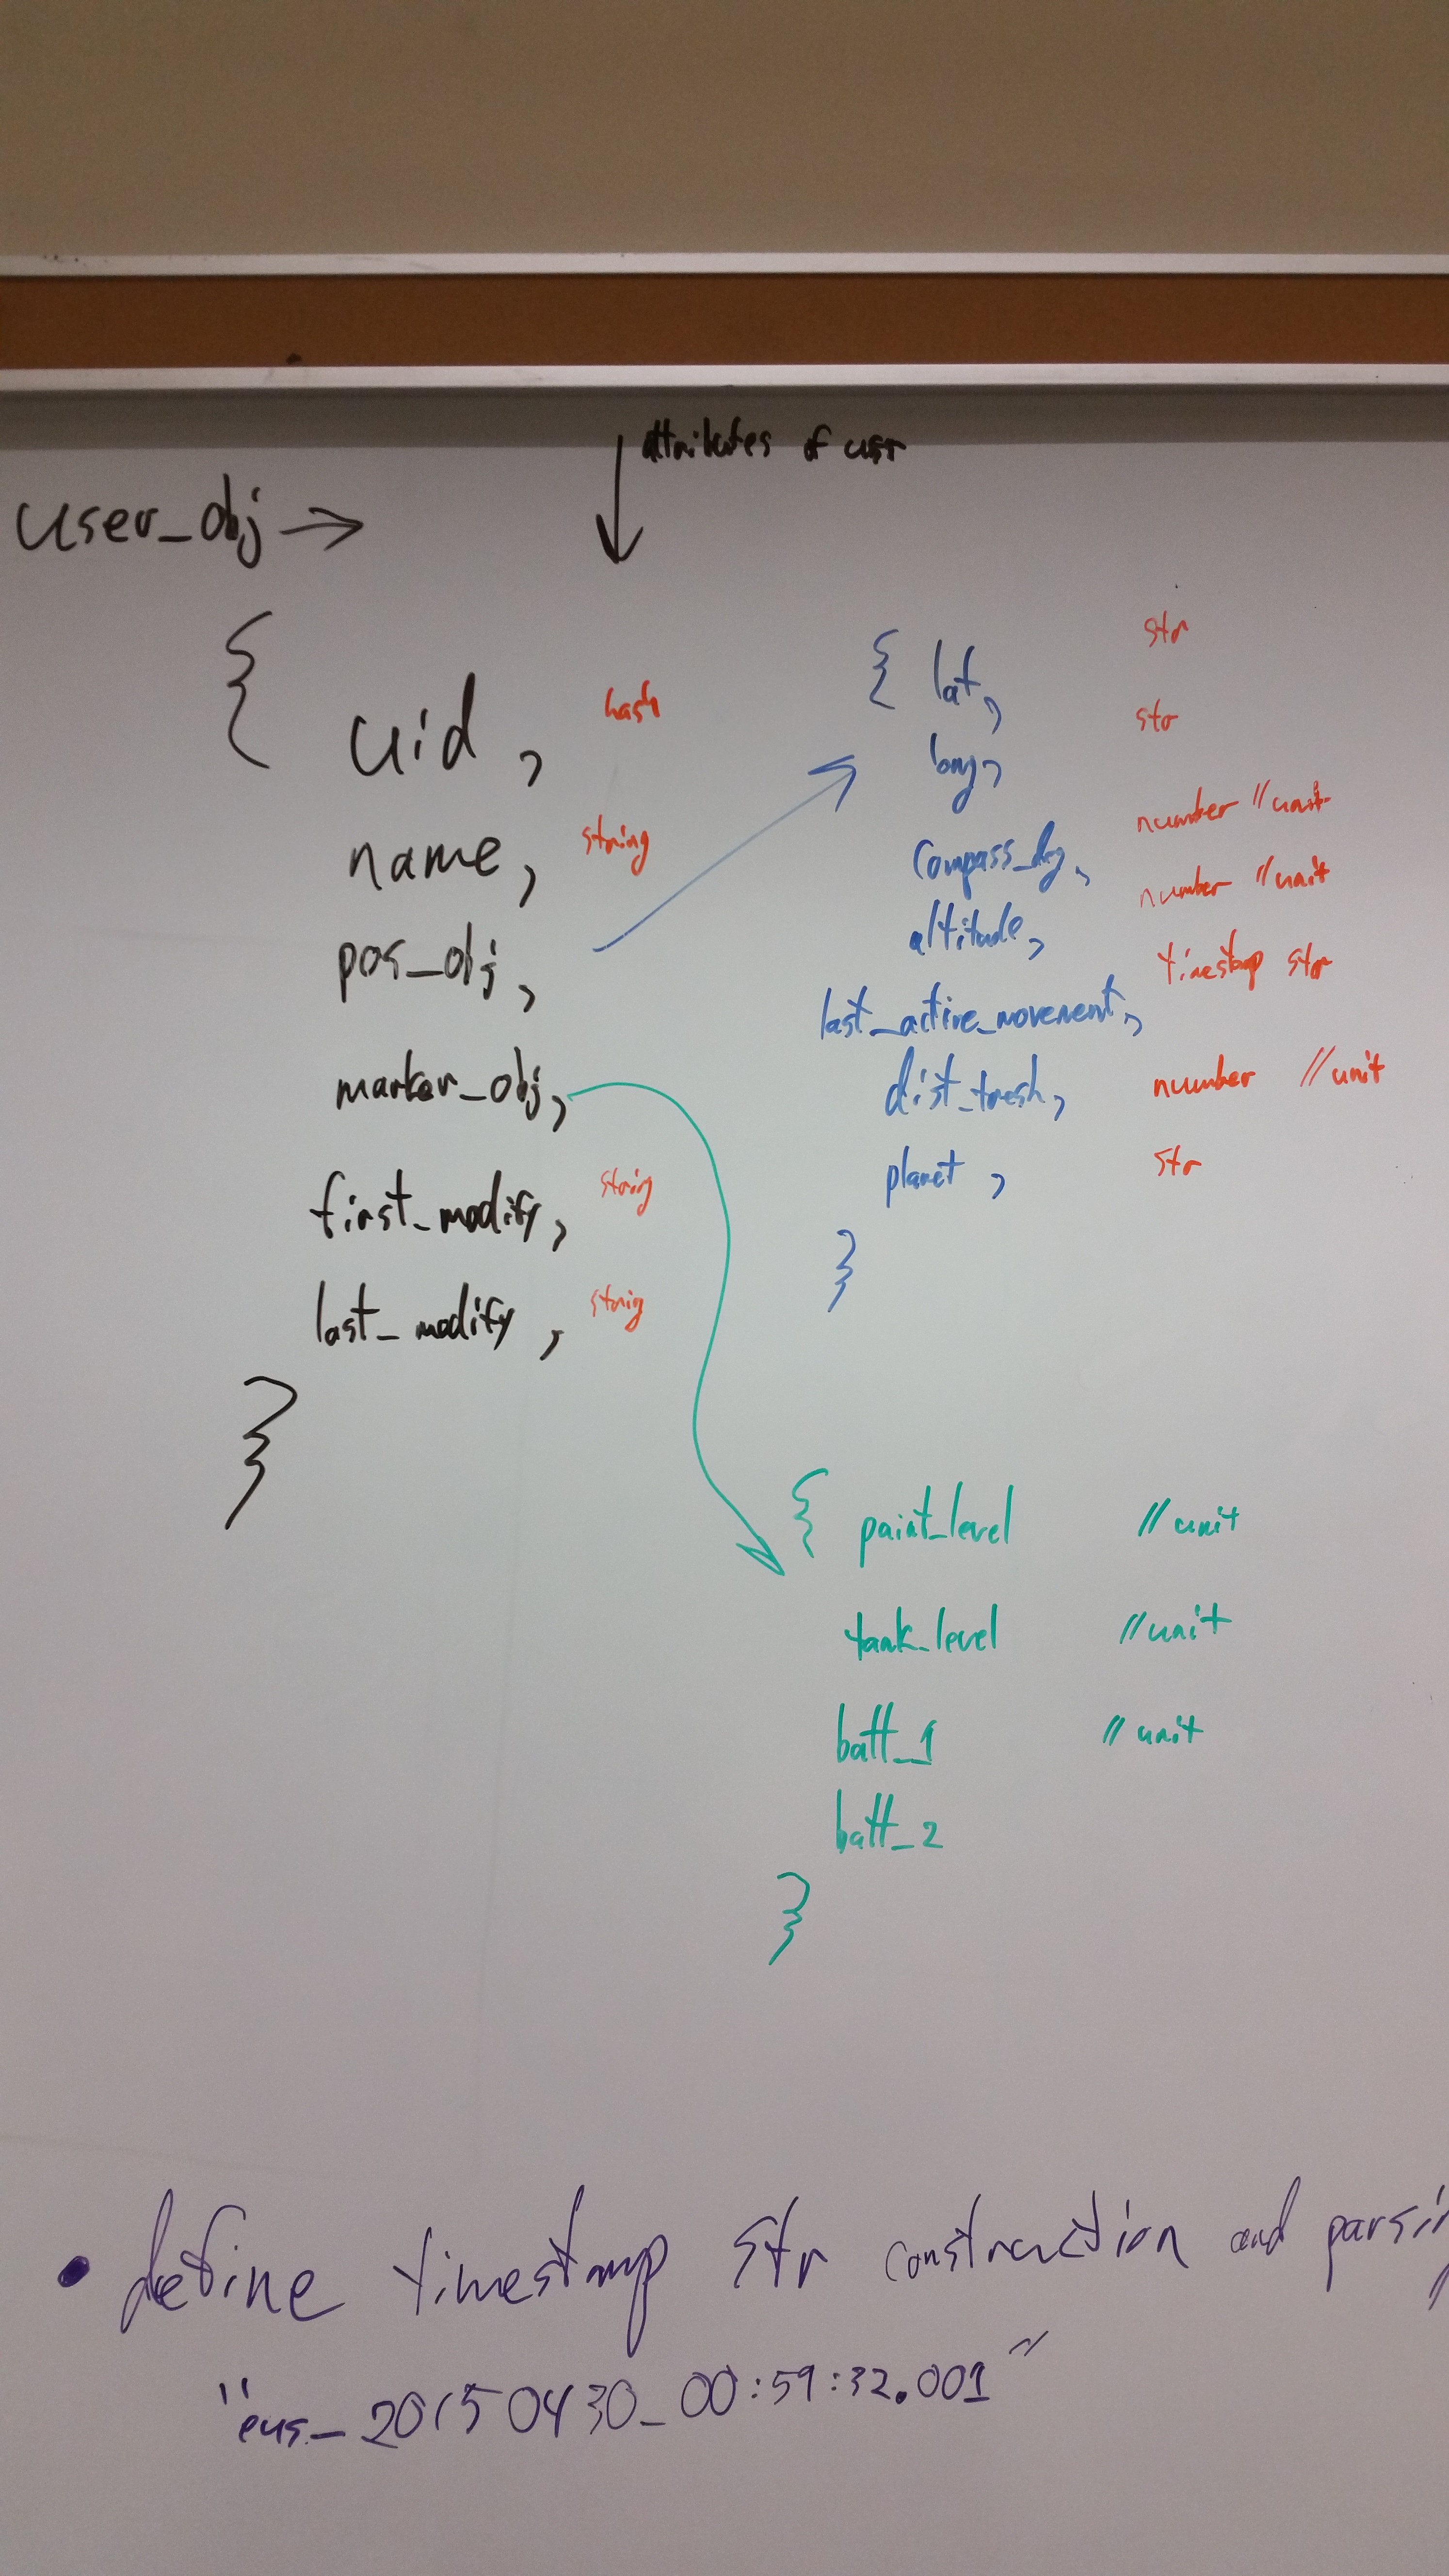 attributes of user
user_obj →
{
uid, hash
name, string
pos_obj,
marker_obj,
first_modify, string
last_modify, string
}
{ lat, str
long, str
compass_deg, number //unit
altitude, number //unit
last_active_movement, timestamp str
dist_tresh, number //unit
planet, str
}
{ paint_level //unit
tank_level //unit
batt_1 //unit
batt_2
}
• define timestamp str construction and
"eus_20150430_00:59:32.001"